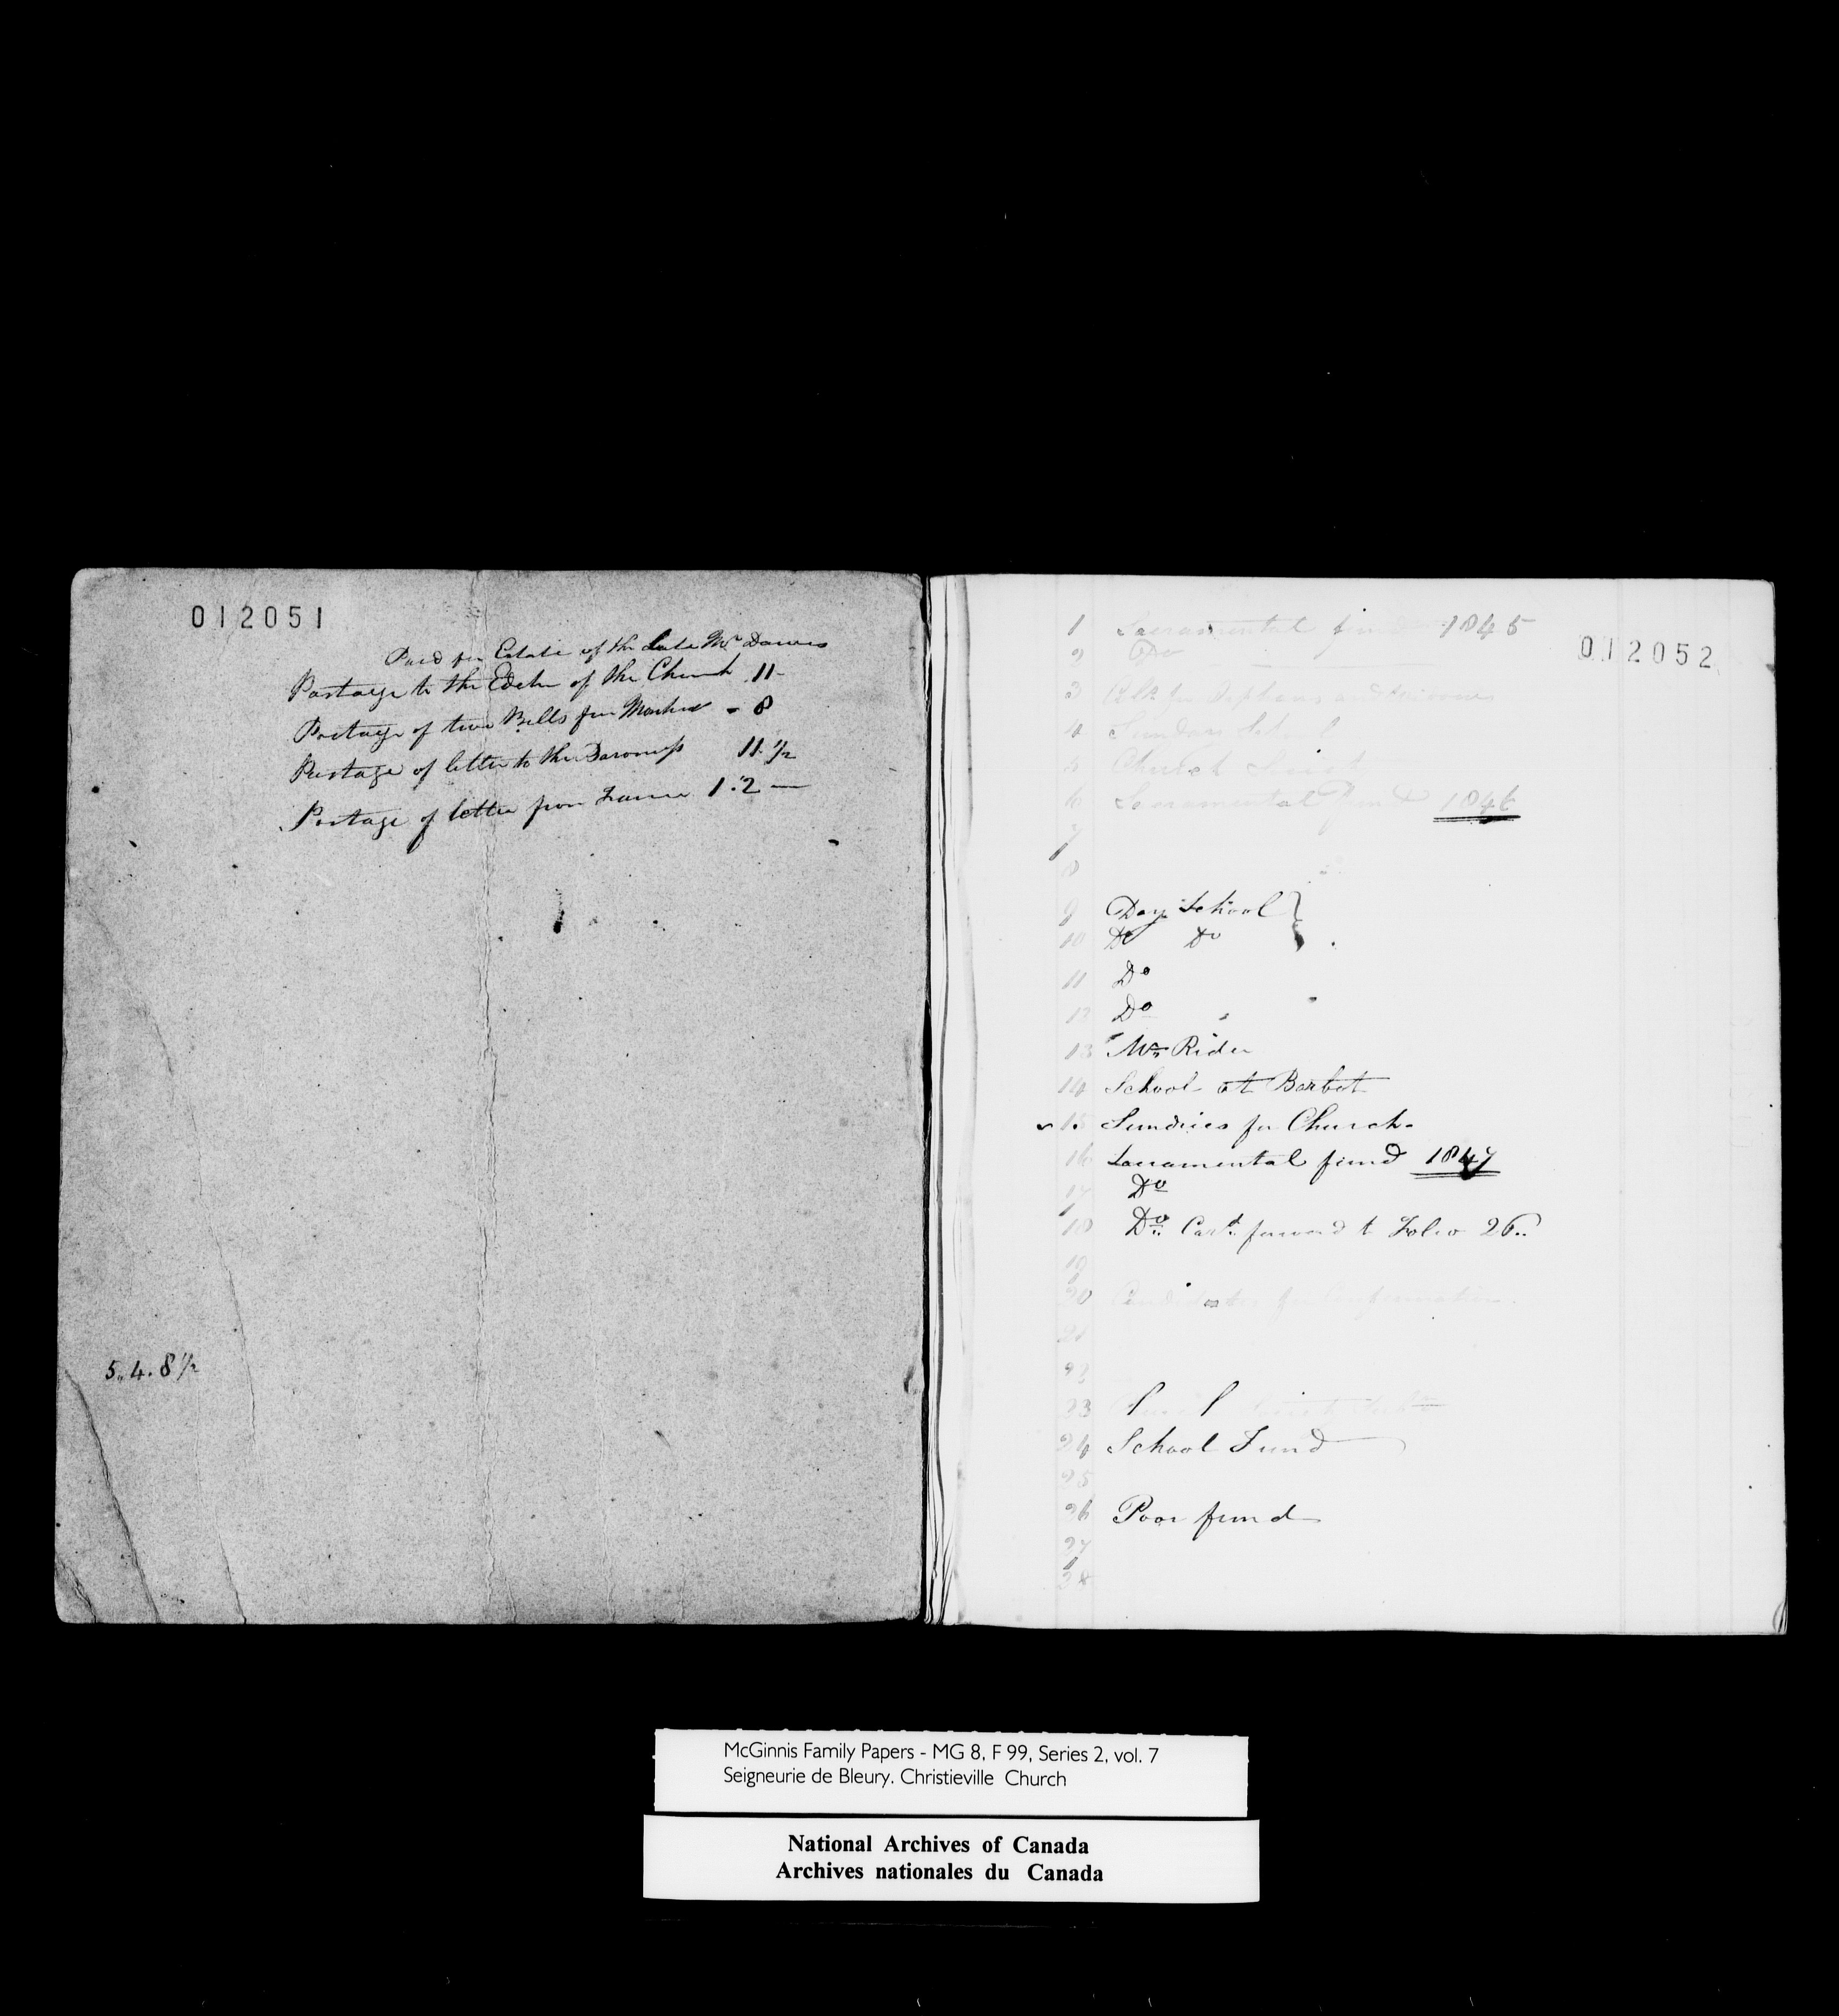 012051
Paid for Estate of the Late Mr Dawes
Postage to the Editor of the Church 11-
Postage of two Bills for - 8
Postage of letter to the Baroness 11 1/2
Postage of letter from France 1.2 —
5.4.8 1/2
012052
1 Sacramental fund 1845
2 Do
3 for Orphans and
4 Sunday School
5 Church
6 Sacramental fund 1846
7
8
9 Day School }
10 Do Do
11 Do
12 Do
13 Mr Rider
14 School at Barbot
15 Sundries for Church.
16 Sacramental fund 1847
17 Do
18 Do. Card. forward to Folio 26..
19
20 Candidates for Confirmation.
21
22
23 Church Society
24 School Fund
25
26 Poor fund
27
28
McGinnis Family Papers - MG 8, F 99, Series 2, vol. 7
Seigneurie de Bleury. Christieville Church
National Archives of Canada
Archives nationales du Canada